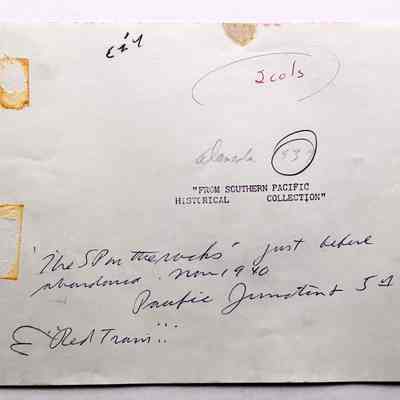 2 cols
Alameda
"FROM SOUTHERN PACIFIC
HISTORICAL COLLECTION"
'The SP on the rocks' just before
abandoned. Nov 1940
Pacific
"Red Train"